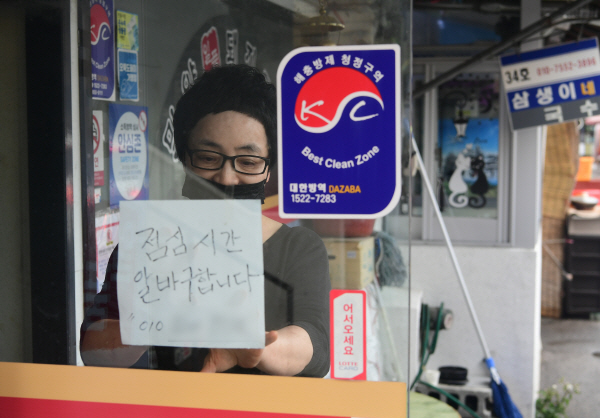 점심시간
알바구합니다
010
해충방제 청정구역
KSC
Best Clean Zone
대한방역 DAZABA
1522-7283
어서오세요
34호 010-7552-3996
삼생이네
국수
안심존